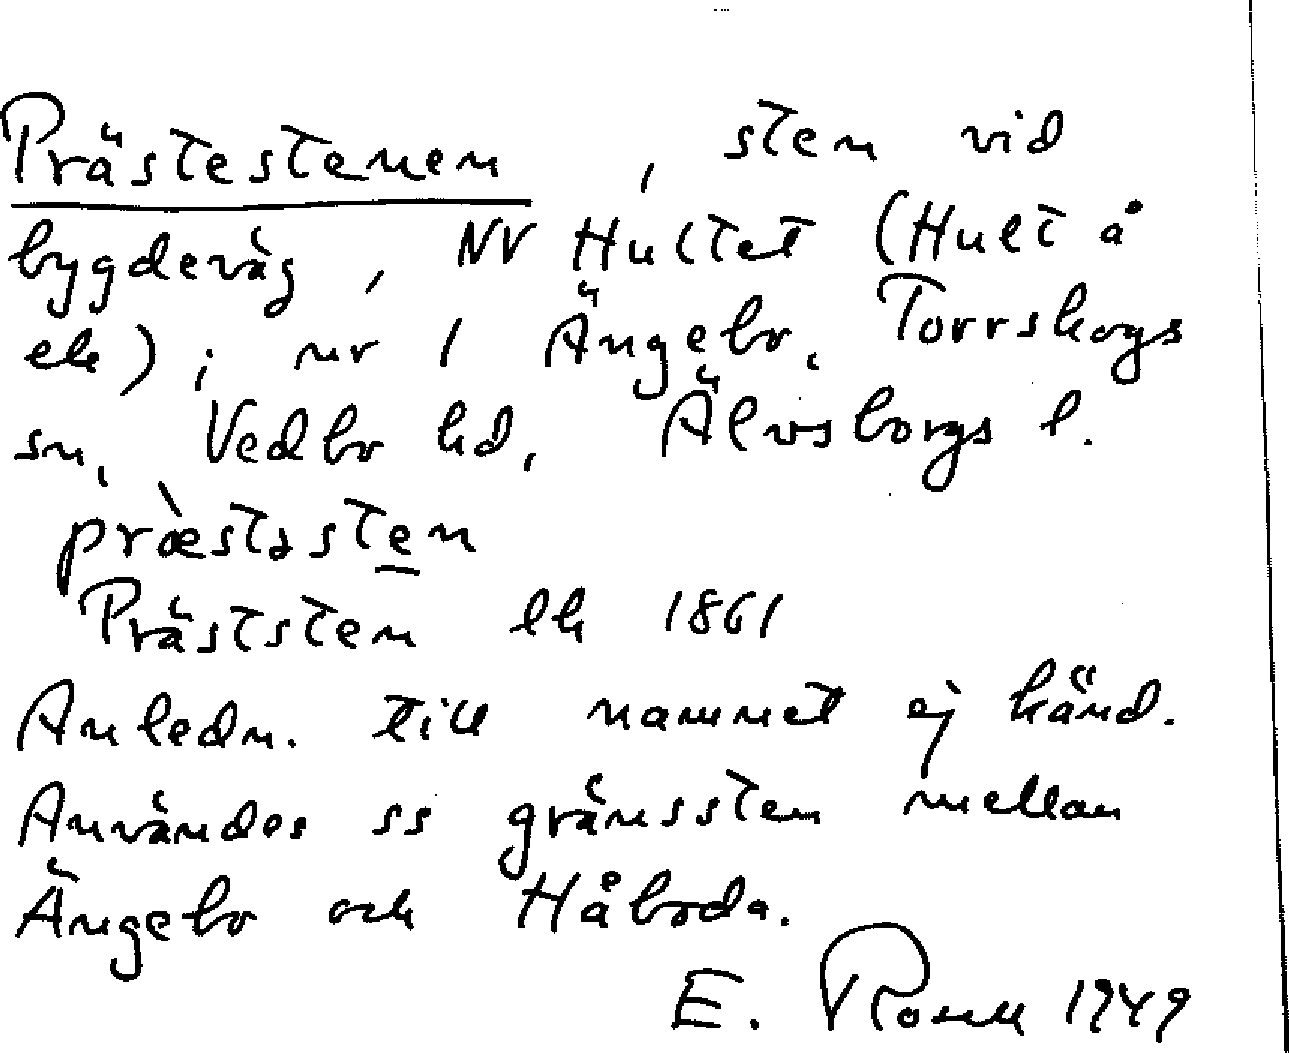 Prästestenen, sten vid
bygdeväg, NV Hultet (Hult å
ek); nr 1 Ängebo, Torrskogs
sn, Vedbo hd, Älvsborgs l.
præ̀stəsten
Präststen lk 1861
Anledn. till namnet ej känd.
Användes ss gränssten mellan
Ängebo och Håbroda.
E. Rosell 1949